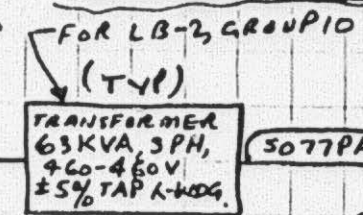 FOR LB-2, GROUP 10
(TYP)
TRANSFORMER
63 KVA, 3 PH,
460-460V
±5% TAP
5077PA